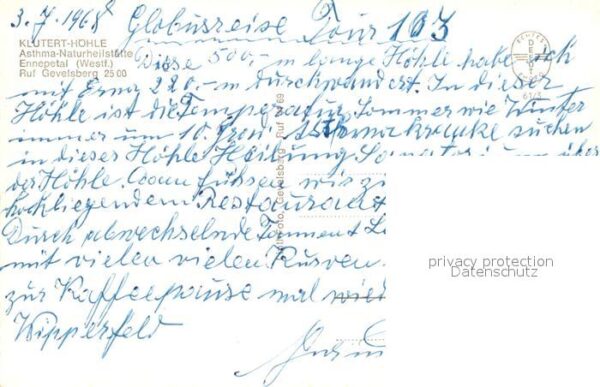 3.7.1968 Globusreise Tour 103
KLUTERT-HÖHLE
Asthma-Naturheilstätte
Ennepetal (Westf.)
Ruf Gevelsberg 25 00
Diese 500,-m lange Höhle habe ich
mit Erna 220,-m durchwandert. In dieser
Höhle ist die Temperatur Sommer wie Winter
immer um 10 Grad. Asthmakranke suchen
in dieser Höhle Heilung über
der Höhle. Dann fuhren wir zu
hochliegendem Restaurant
Durch abwechselnde Tannen
mit vielen vielen Kurven
zur Kaffeepause mal wieder
Wipperfeld
Gevelsberg Ruf
ECHTES FOTO
privacy protection
Datenschutz